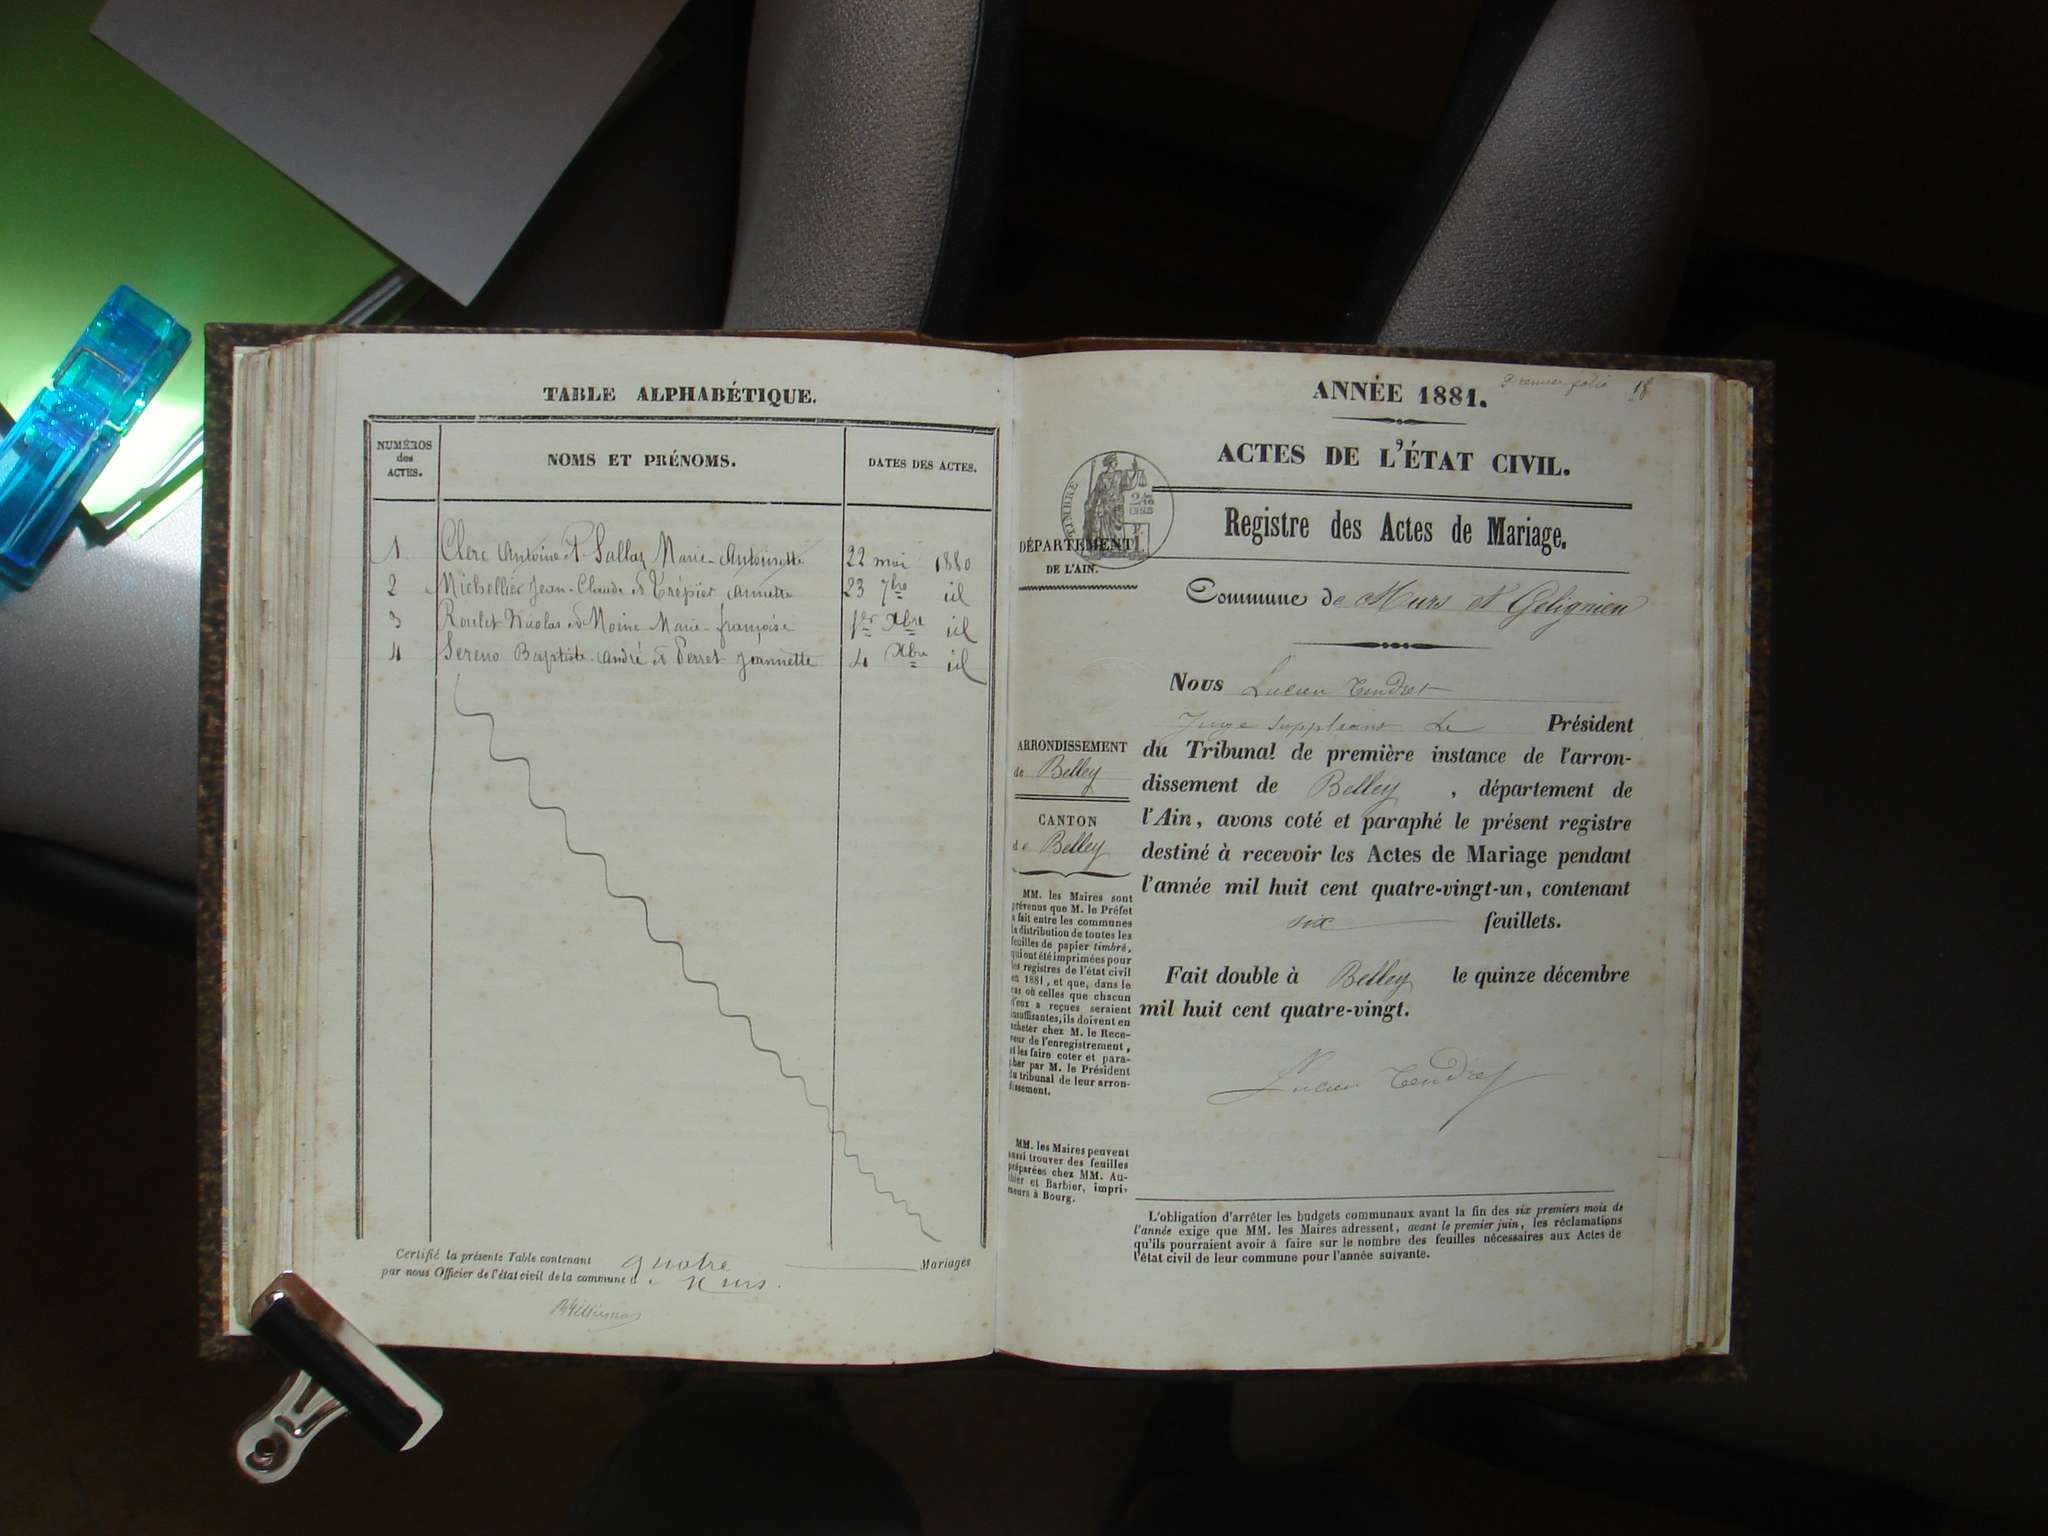 TABLE ALPHABÉTIQUE.
NUMÉROS des ACTES.
NOMS ET PRÉNOMS.
DATES DES ACTES.
1 Clerc Antoine et Sallaz Marie-Antoinette 22 mai 1880
2 Michellier Jean-Claude et Trépier Annette 23 7bre id
3 Roulet Nicolas et Moine Marie-françoise 1er Xbre id
4 Sereno Baptiste-André et Perret Jeannette 4 Xbre id
Certifié la présente Table contenant quatre Mariages
par nous Officier de l'état civil de la commune de Murs.
Premier folio 18
ANNÉE 1881.
ACTES DE L'ÉTAT CIVIL.
TIMBRE
Registre des Actes de Mariage.
DÉPARTEMENT
DE L'AIN.
Commune de Murs et Gelignieu
Nous Lucien Tendret
Juge suppléant Le Président
du Tribunal de première instance de l'arron-
dissement de Belley, département de
l'Ain, avons coté et paraphé le présent registre
destiné à recevoir les Actes de Mariage pendant
l'année mil huit cent quatre-vingt-un, contenant
six feuillets.
Fait double à Belley le quinze décembre
mil huit cent quatre-vingt.
Lucien Tendret
ARRONDISSEMENT
de Belley
CANTON
de Belley
MM. les Maires sont
prévenus que M. le Préfet
a fait entre les communes
la distribution de toutes les
feuilles de papier timbré,
qui ont été imprimées pour
les registres de l'état civil
en 1881, et que, dans le
cas où celles que chacun
d'eux a reçues seraient
insuffisantes, ils doivent en
acheter chez M. le Rece-
veur de l'enregistrement,
et les faire coter et para-
pher par M. le Président
du tribunal de leur arron-
dissement.
MM. les Maires peuvent
aussi trouver des feuilles
préparées chez MM. Au-
thier et Barbier, impri-
meurs à Bourg.
L'obligation d'arrêter les budgets communaux avant la fin des six premiers mois de
l'année exige que MM. les Maires adressent, avant le premier juin, les réclamations
qu'ils pourraient avoir à faire sur le nombre des feuilles nécessaires aux Actes de
l'état civil de leur commune pour l'année suivante.